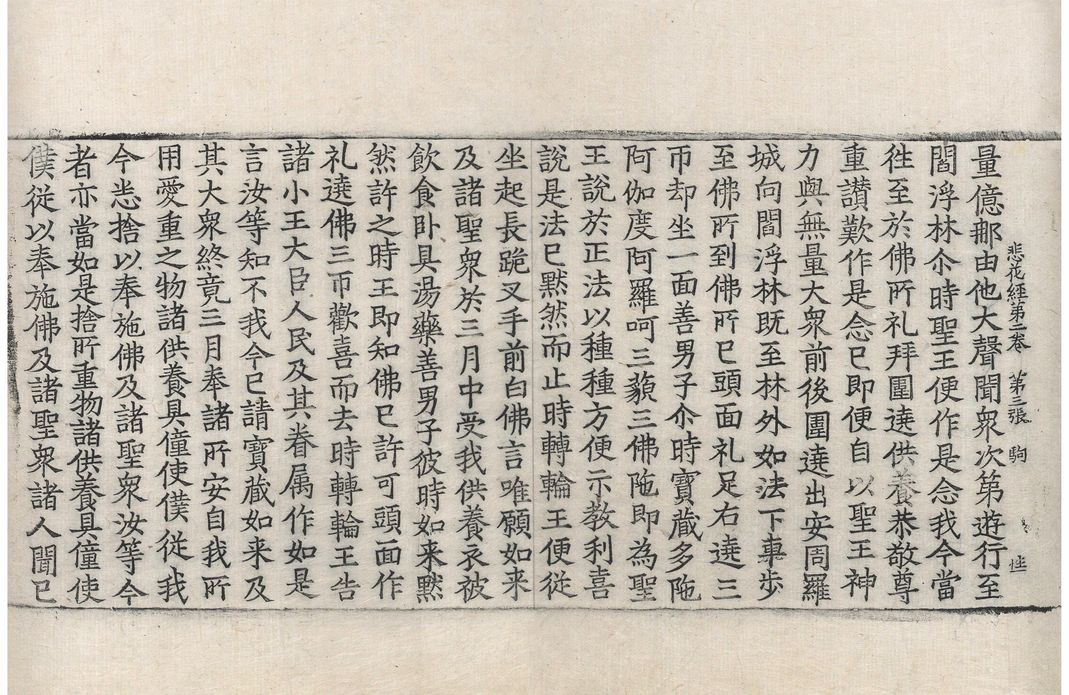 悲花經第二卷 第三張 駒
量億那由他大聲聞衆次第遊行至
閻浮林尒時聖王便作是念我今當
徃至於佛所礼拜圍遶供養恭敬尊
重讃歎作是念已即便自以聖王神
力與無量大衆前後圍遶出安周羅
城向閻浮林既至林外如法下車步
至佛所到佛所已頭面礼足右遶三
帀却坐一面善男子尒時寶藏多陁
阿伽度阿羅呵三藐三佛陁即為聖
王說於正法以種種方便示教利喜
說是法已黙然而止時轉輪王便從
坐起長跪叉手前白佛言唯願如来
及諸聖衆於三月中受我供養衣被
飲食卧具湯藥善男子彼時如来黙
然許之時王即知佛已許可頭面作
礼遶佛三帀歡喜而去時轉輪王告
諸小王大臣人民及其眷属作如是
言汝等知不我今已請寶藏如来及
其大衆終竟三月奉諸所安自我所
用愛重之物諸供養具僮使僕従我
今悉捨以奉施佛及諸聖衆汝等今
者亦當如是捨所重物諸供養具僮使
僕従以奉施佛及諸聖衆諸人聞已